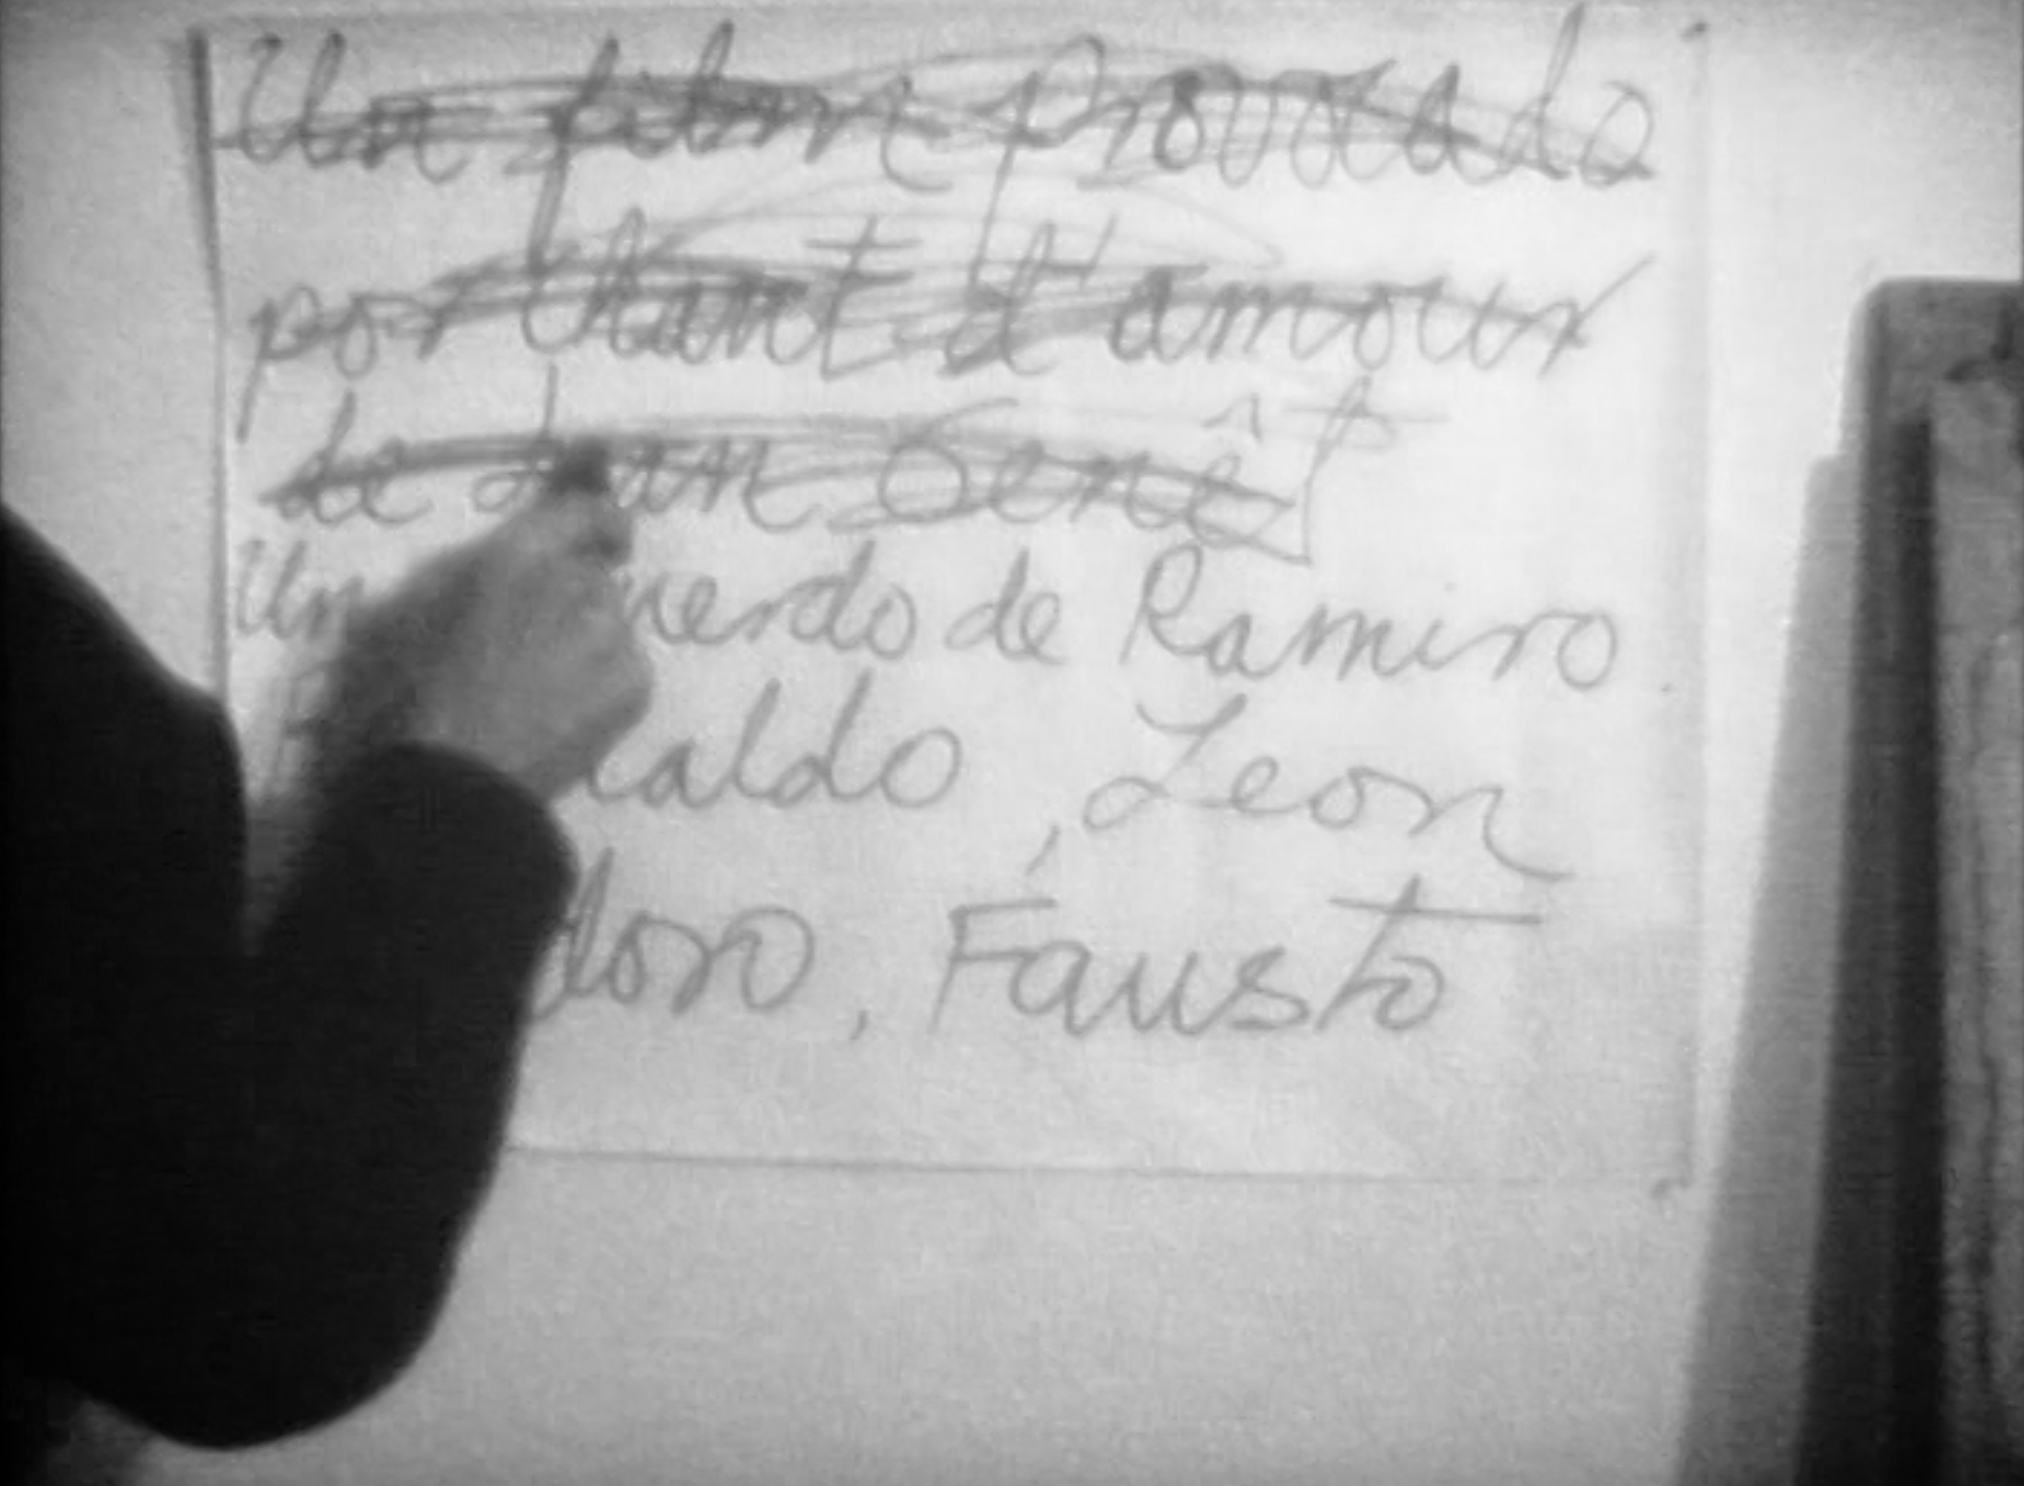 Un film provocado
por Chant d'amour
de Jean Genêt
Un de Ramiro
, Leon
, Fausto